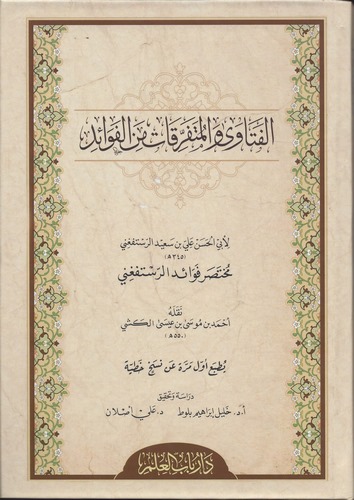 الفتاوى والمتفرقات من الفوائد
لأبي الحسن علي بن سعيد الرستفغني
(٣٤٥هـ)
مختصر فوائد الرستفغني
نقله
أحمد بن موسى بن عيسى الكشي
(٥٥٠هـ)
يطبع أول مرة عن نسخ خطية
دراسة وتحقيق
أ.د. خليل إبراهيم بلوط د. علي أصلان
دار باب العلم